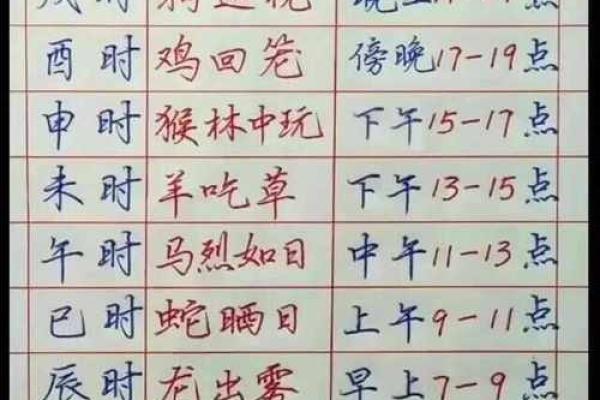 酉时 鸡回笼 傍晚17-19点
申时 猴林中玩 下午15-17点
未时 羊吃草 下午13-15点
午时 马烈如日 中午11-13点
巳时 蛇晒日 上午9-11点
辰时 龙出雾 早上7-9点